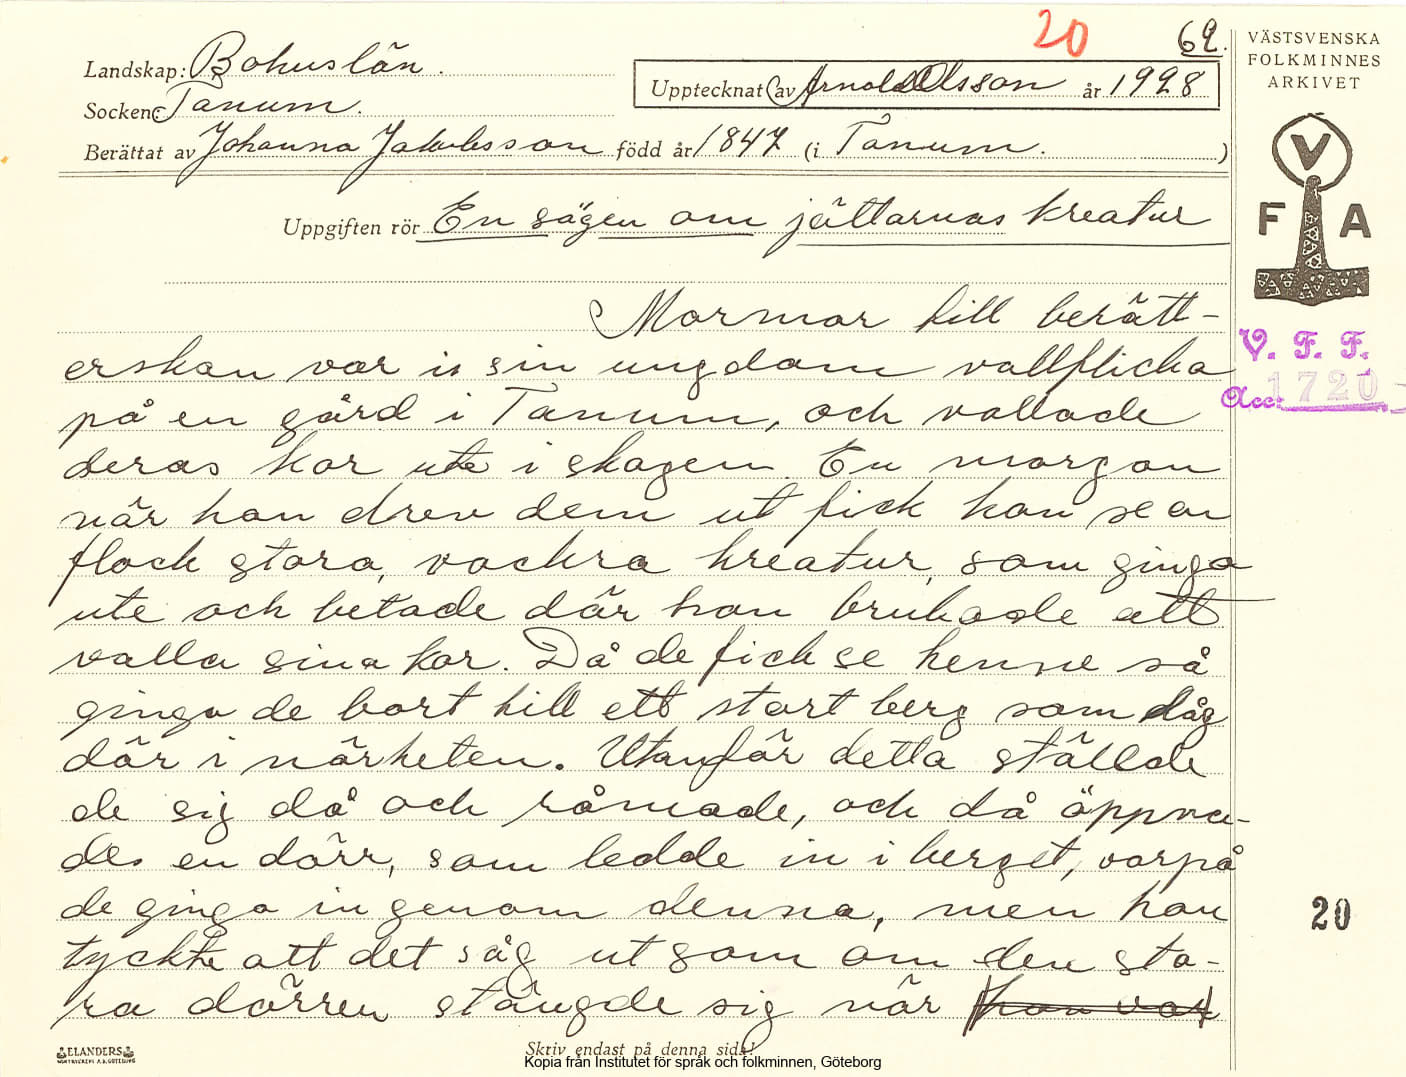 20
62.
VÄSTSVENSKA
FOLKMINNES
ARKIVET
Landskap: Bohuslän.
Upptecknat av Arnold Olsson år 1928
Socken: Tanum.
Berättat av Johanna Jakobsson född år 1847 (i Tanum. )
V
F A
Uppgiften rör En sägen om jättarnas kreatur
Mormor till berätt-
erskan var i sin ungdom vallflicka
på en gård i Tanum, och vallade
deras kor ute i skogen. En morgon
när hon drev dem ut fick hon se en
flock stora, vackra kreatur, som gingo
ute och betade där hon brukade att
valla sina kor. Då de fick se henne så
gingo de bort till ett stort berg som låg
där i närheten. Utanför detta ställde
de sig då och råmade, och då öppna-
des en dörr, som ledde in i berget, varpå
de gingo in genom denna, men hon
tyckte att det såg ut som om den sto-
ra dörren stängde sig när hon var
V. F. F.
Acc: 1720
20
ELANDERS
Skriv endast på denna sida!
Kopia från Institutet för språk och folkminnen, Göteborg